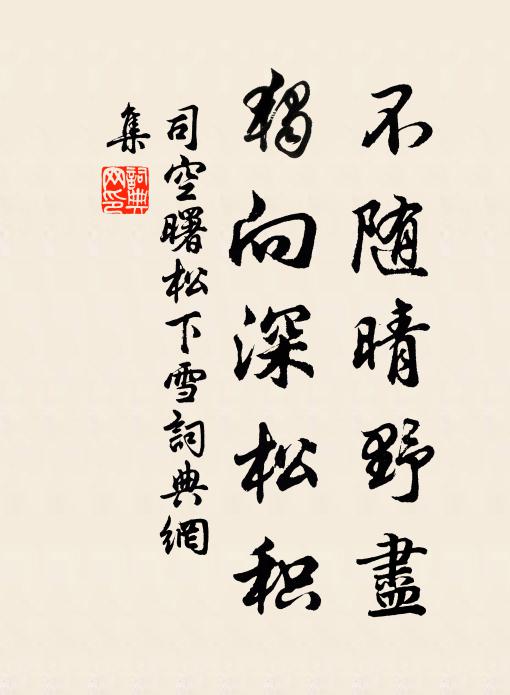 不随晴野盡
獨向深松积
司空曙松下雪詞典網
集
詞典网印